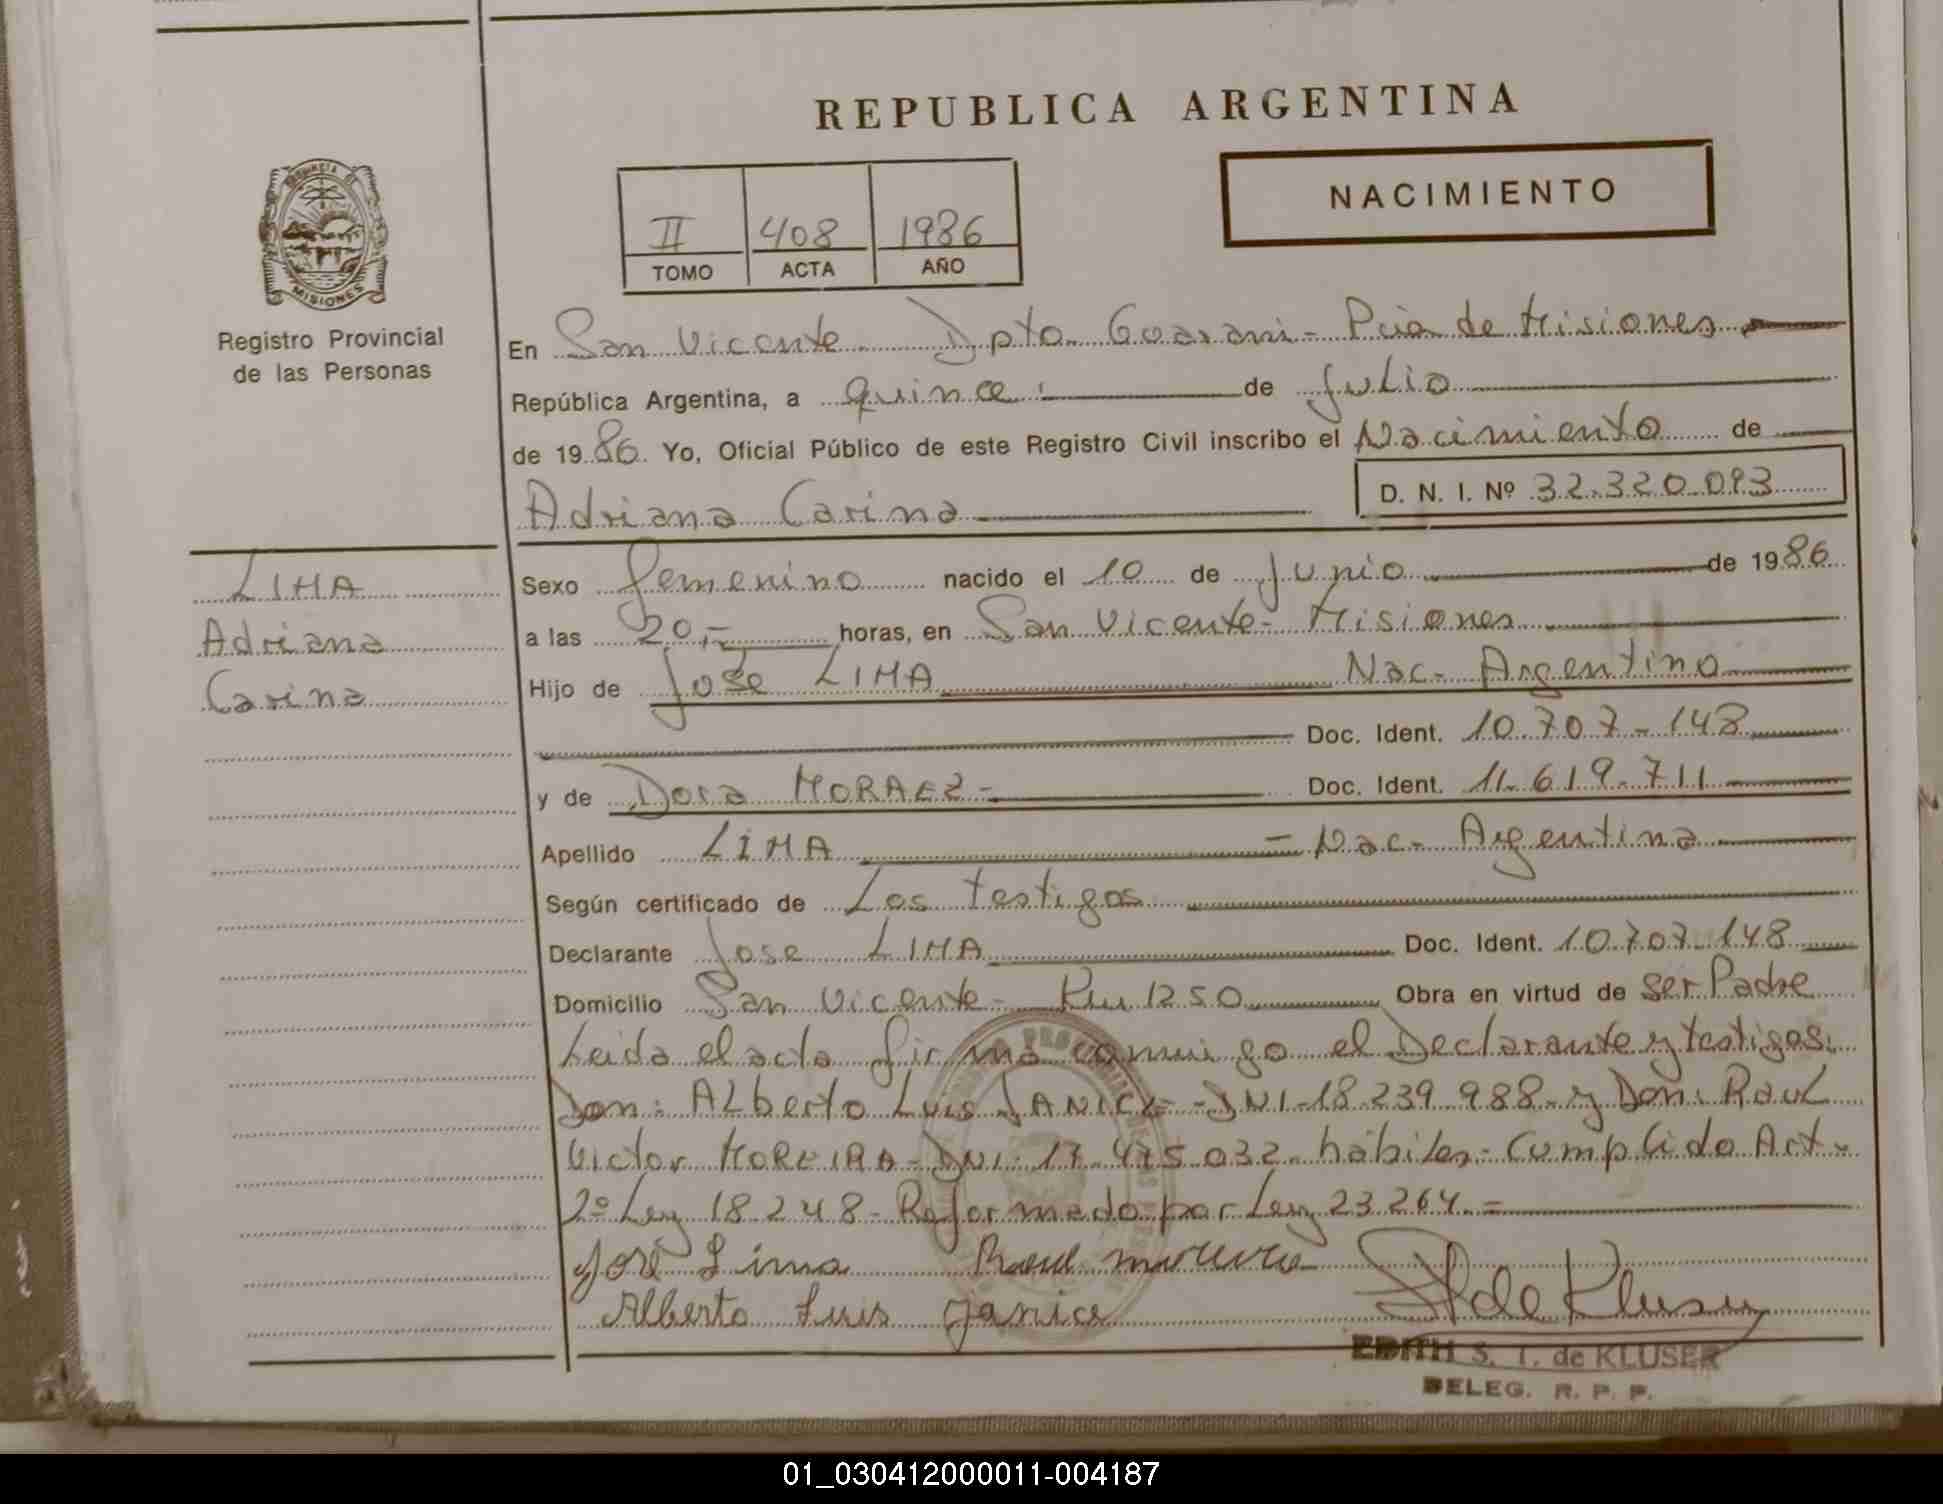 REPUBLICA ARGENTINA
NACIMIENTO
II 408 1986
TOMO ACTA AÑO
MISIONES
Registro Provincial
de las Personas
En San Vicente Dpto. Guarani - Pcia de Misiones
República Argentina, a quince de Julio
de 1986. Yo, Oficial Público de este Registro Civil inscribo el Nacimiento de
D. N. I. Nº 32.320.093
Adriana Carina
LIMA
Adriana
Carina
Sexo femenino nacido el 10 de Junio de 1986
a las 20,- horas, en San Vicente - Misiones
Hijo de José LIMA Nac. Argentino
Doc. Ident. 10.707-148
y de Dora MORAEZ - Doc. Ident. 11.619.711
Apellido LIMA = Nac. Argentina
Según certificado de Los testigos
Declarante Jose LIMA Doc. Ident. 10.707.148
Domicilio San Vicente - Km 1250 Obra en virtud de ser Padre
Leida el acta firma conmigo el Declarante y testigos.
Don: Alberto Luis JANICE - DNI-18.239.988 - y Don: Raul
Victor MOREIRA - DNI. 17.475.032 - hábiles - Cumplido Art.
2º Ley 18.248 - Reformado por Ley 23.264. =
José Lima Raul moreira
Alberto Luis Janice de Kluser
EDITH S. T. de KLUSER
DELEG. R. P. P.
01_030412000011-004187